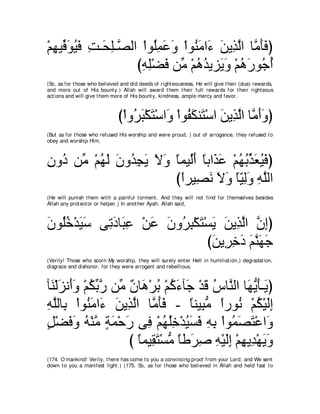 (فَأَمَّا الَّذِينَ ءَامَنُواْ وَعَمِلُواْ الصَّـلِحَـتِ فَيُوَفِّيهِمْ
أُجُورَهُمْ وَيَزيدُهُمْ مِّن فَضْلِهِ)
(So, as for those who believed and did deeds of righteousness, He will give their (due) rewards,
and more out of His bounty.) Allah will award them their full rewards for their righteous
actions and will give them more of His bounty, kindness, ample mercy and favor.
(وَأَمَّا الَّذِينَ اسْتَنكَفُواْ وَاسْتَكْبَرُواْ)
(But as for those who refused His worship and were proud, ) out of arrogance, they refused to
obey and worship Him,
(فَيُعَذِّبُهُمْ عَذَاباً أَلُيماً وَلاَ يَجِدُونَ لَهُمْ مِّن دُونِ
اللَّهِ وَلِيّاً وَلاَ نَصِيراً)
(He will punish them with a painful torment. And they will not find for themselves besides
Allah any protector or helper.) In another Ayah, Allah said,
(إِنَّ الَّذِينَ يَسْتَكْبِرُونَ عَنْ عِبَادَتِى سَيَدْخُلُونَ
جَهَنَّمَ دَخِرِينَ)
(Verily! Those who scorn My worship, they will surely enter Hell in humiliation.) degradation,
disgrace and dishonor, for they were arrogant and rebellious.
(يَـأَيُّهَا النَّاسُ قَدْ جَآءَكُمْ بُرْهَانٌ مِّن رَّبِّكُمْ وَأَنزَلْنَآ
إِلَيْكُمْ نُوراً مُّبِيناً - فَأَمَّا الَّذِينَ ءَامَنُواْ بِاللَّهِ
وَاعْتَصَمُواْ بِهِ فَسَيُدْخِلُهُمْ فِى رَحْمَةٍ مَّنْهُ وَفَضْلٍ
وَيَهْدِيهِمْ إِلَيْهِ صِرَطاً مُّسْتَقِيماً )
(174. O mankind! Verily, there has come to you a convincing proof from your Lord; and We sent
down to you a manifest light.) (175. So, as for those who believed in Allah and held fast to